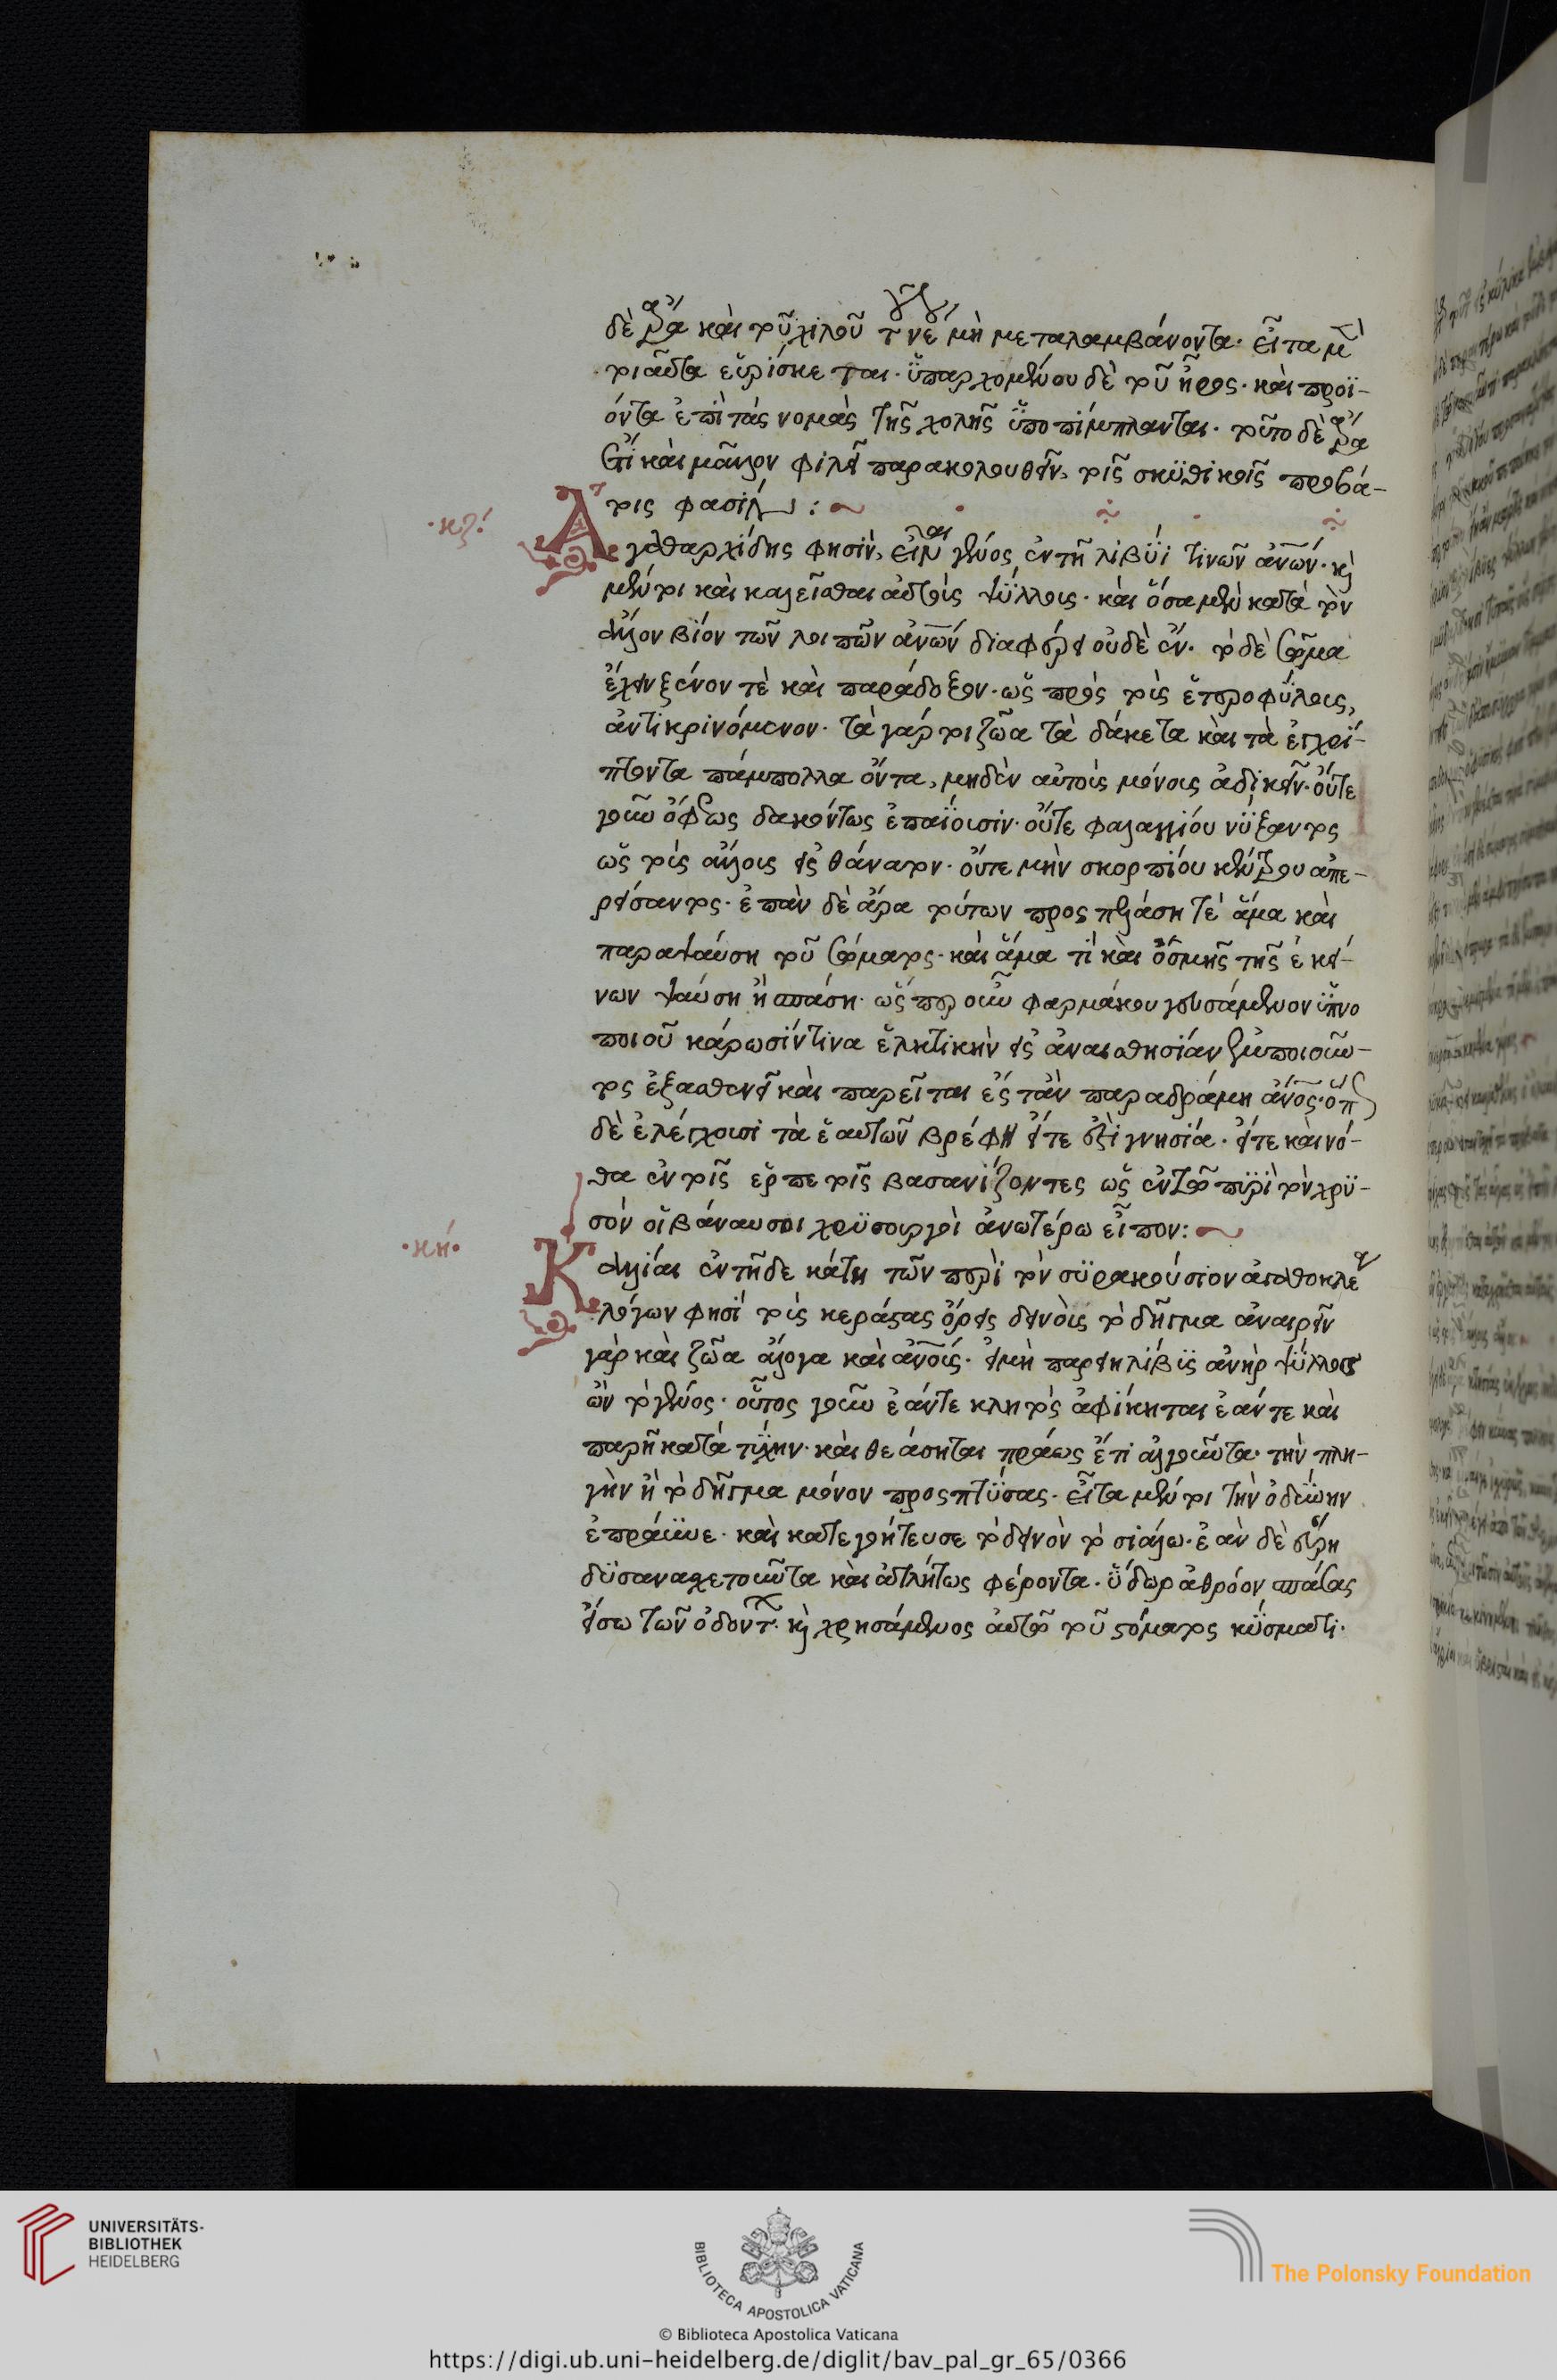 δὲ ἄρα καὶ τοῦ χιλοῦ τ νε μὴ μεταλαμβάνοντα· εἶτα μέντοι
τοιαῦτα εὑρίσκεται· ὑπαρχομένου δὲ τοῦ ἦρος· καὶ προϊ-
όντα ἐπὶ τὰς νομὰς τῆς χολῆς ὑποπίμπλανται· τοῦτο δὲ ἄρα
ἔτι καὶ μᾶλλον φιλεῖ παρακολουθεῖν, τοῖς σκυθικοῖς προβά-
τοις φασίν :~
·κζ·
Ἀγαθαρχίδης φησίν, εἶναι γένος ἐν τῇ λιβύῃ τινῶν ἀνων· κ
μέντοι καὶ καλεῖσθαι αὐτοὺς ψύλλους· καὶ ὅσα μὲν κατὰ τὸν
ἄλλον βίον τῶν λοιπῶν ἀνων διαφέρει οὐδὲ ἕν· τὸ δὲ σῶμα
ἔχειν ξένον τὲ καὶ παράδοξον· ὡς πρὸς τοὺς ἑτεροφύλους,
ἀντικρινόμενον· τὰ γάρ τοι ζῶα τὰ δάκετα καὶ τὰ ἐγχρί-
πτοντα πάμπολλα ὄντα, μηδὲν αὐτοὺς μόνους ἀδικεῖν· οὔτε
γοῦν ὄφεως δακόντως ἐπαΐουσιν· οὔτε φαλαγγίου νύξαντος
ὡς τοὺς ἄλλους εἰς θάνατον· οὔτε μὴν σκορπίου κέντρον ἀπε-
ρείσαντος· ἐπὰν δὲ ἄρα τούτων προσπελάσῃ τὲ ἅμα καὶ
παραψαύσῃ τοῦ σώματος· καὶ ἅμα τι καὶ ὀσμῆς τῆς ἐκεί-
νων ψαύσῃ ἢ σπάσῃ· ὥσπερ οὖν φαρμάκου γευσάμενον ὑπνο
ποιοῦ κάρωσίν τινα ἑλκτικὴν εἰς ἀναισθησίαν ἐμποιοῦν-
τος ἐξασθενεῖ καὶ παρεῖται ἔς τ' ἂν παραδράμῃ ἄνος· ὅπως
δὲ ἐλέγχουσι τὰ ἑαυτῶν βρέφη εἴτε ἐστὶ γνησία· εἴτε καὶ νό-
θα ἐν τοῖς ἑρπετοῖς βασανίζοντες ὡς ἐν τῷ πυρὶ τὸν χρυ-
σὸν οἱ βάναυσοι χρυσουργοὶ ἀνωτέρω εἶπον:~
·κη·
Καλλίας ἐν τῇ δεκάτῃ τῶν περὶ τὸν συρακούσιον ἀγαθοκλέα
λόγων φησὶ τοὺς κεράστας ὄφεις δεινοὺς τὸ δῆγμα ἀναιρεῖν
γὰρ καὶ ζῶα ἄλογα καὶ ἀνους· εἰ μὴ παρείη λίβυς ἀνὴρ ψύλλος
ὢν τὸ γένος· οὗτος γοῦν ἐάν τε κλητὸς ἀφίκηται ἐάν τε καὶ
παρῇ κατὰ τύχην· καὶ θεάσηται πράως ἔτι ἀλγοῦντα· τὴν πλη-
γὴν ἢ τὸ δῆγμα μόνον προσπτύσας· εἶτα μέντοι τὴν ὀδύνην
ἐπράϋνε· καὶ κατεγοήτευσε τὸ δεινὸν τὸ σιάλω· ἐὰν δὲ εὕρῃ
δυσανασχετοῦντα καὶ ἀτλήτως φέροντα· ὕδωρ ἀθρόον σπάσας
εἴσω τῶν ὀδόντ· κ χρησάμενος αὐτῷ τοῦ στόματος κύσματι·
UNIVERSITÄTS-
BIBLIOTHEK
HEIDELBERG
BIBLIOTECA APOSTOLICA VATICANA
The Polonsky Foundation
© Biblioteca Apostolica Vaticana
https://digi.ub.uni-heidelberg.de/diglit/bav_pal_gr_65/0366